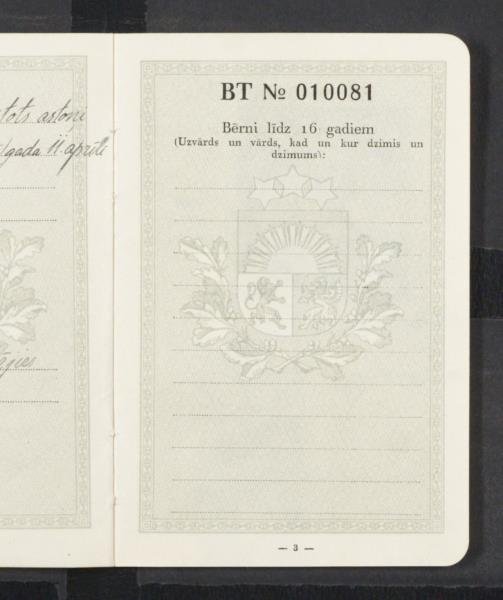 tots astoņi
gada 11. aprīlī
BT № 010081
Bērni līdz 16 gadiem
(Uzvārds un vārds, kad un kur dzimis un
dzimums):
— 3 —